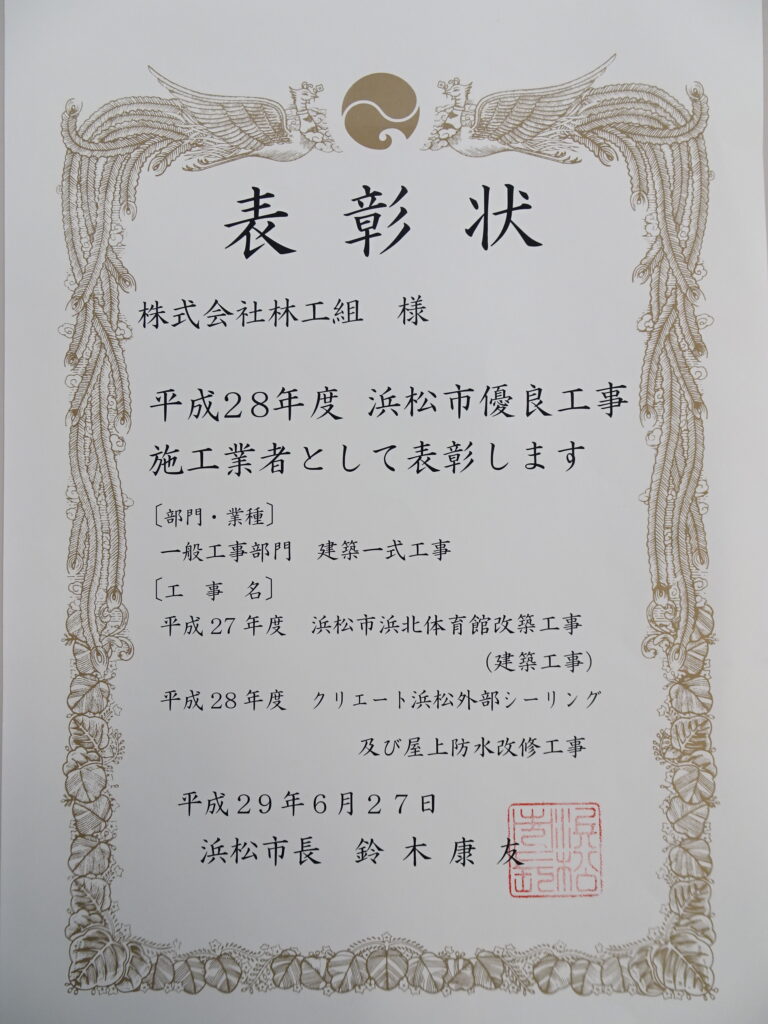 表彰状
株式会社林工組　様
平成28年度 浜松市優良工事
施工業者として表彰します
〔部門・業種〕
一般工事部門　建築一式工事
〔工　事　名〕
平成27年度　浜松市浜北体育館改築工事
（建築工事）
平成28年度　クリエート浜松外部シーリング
及び屋上防水改修工事
平成29年6月27日
浜松市長　鈴木康友